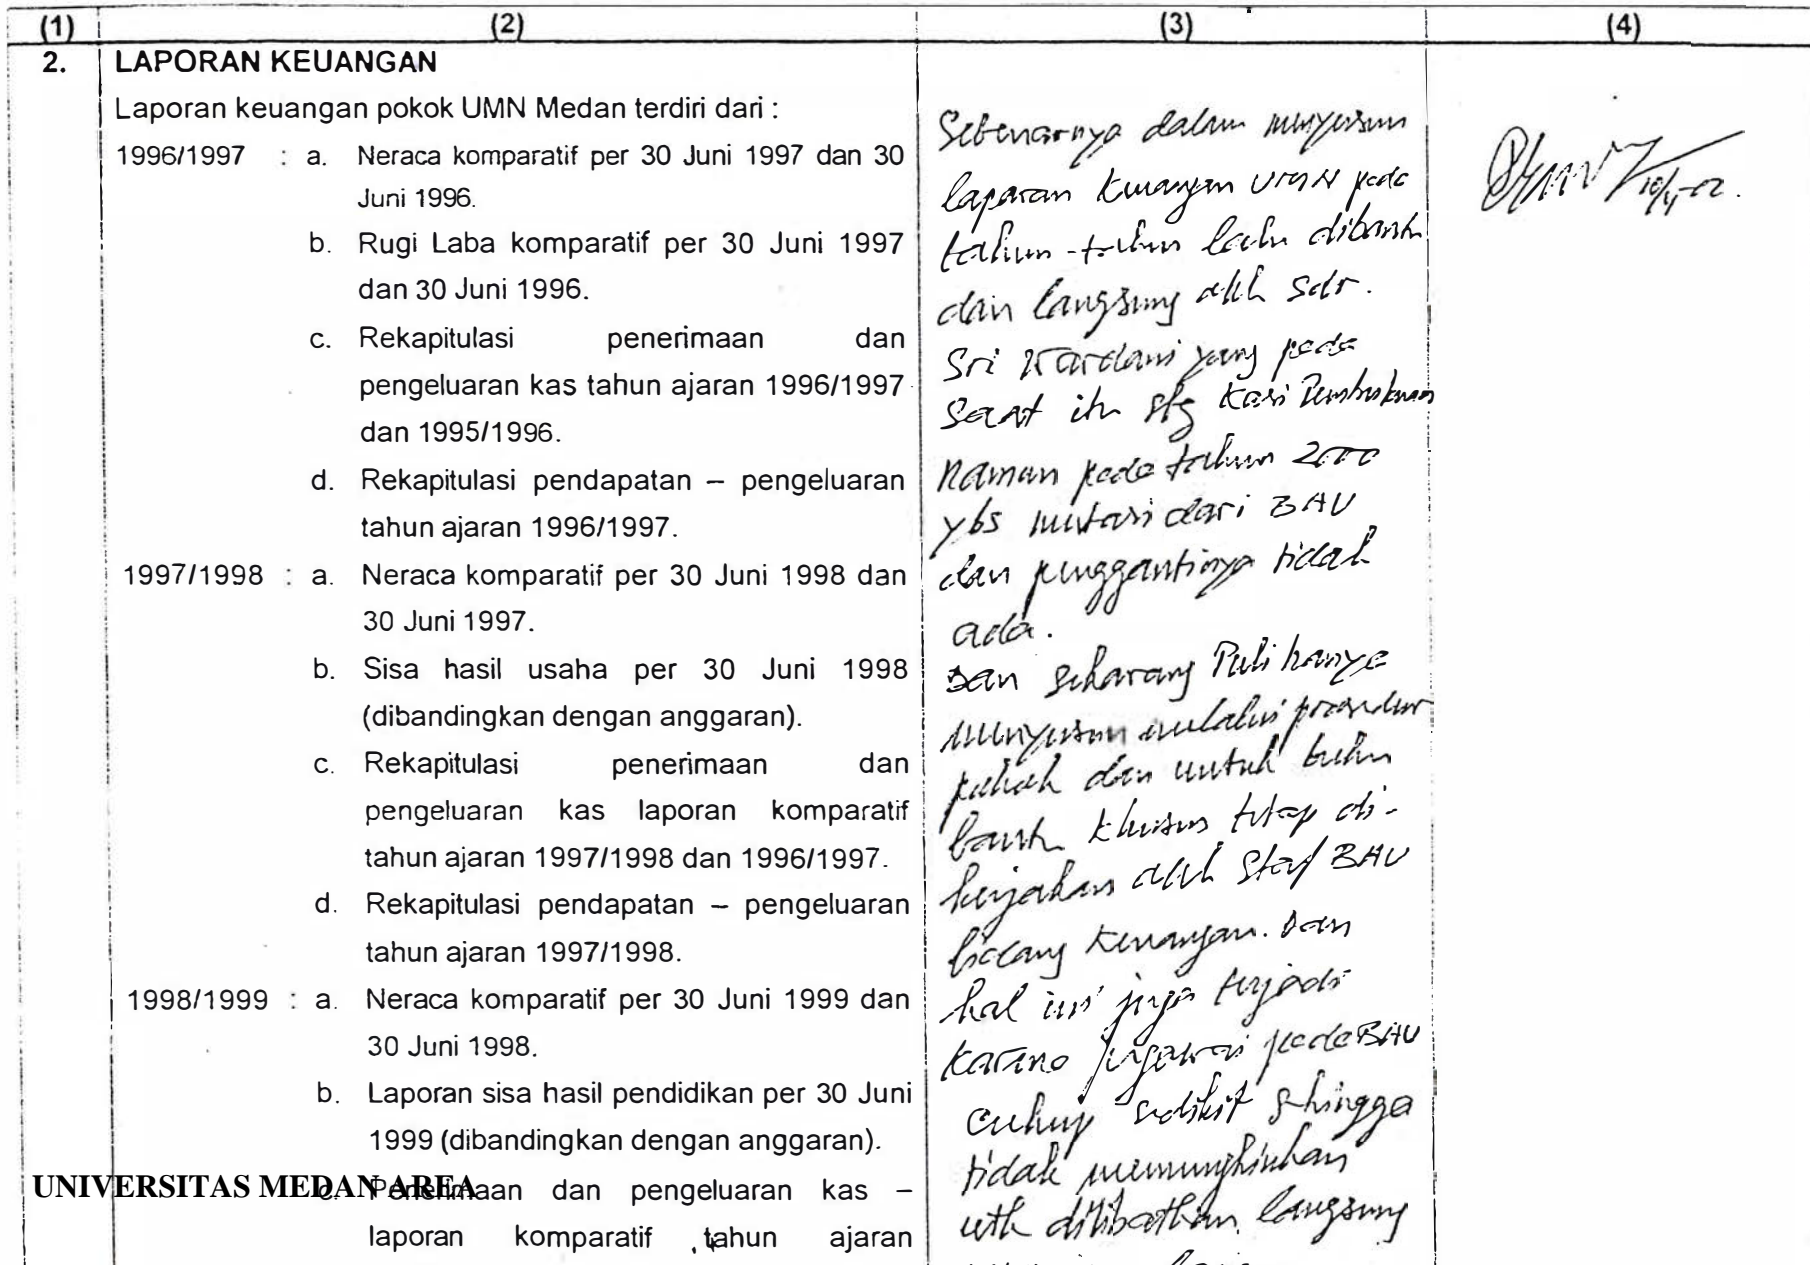 (1) (2) (3) (4)
2. LAPORAN KEUANGAN
Laporan keuangan pokok UMN Medan terdiri dari :
1996/1997 : a. Neraca komparatif per 30 Juni 1997 dan 30
Juni 1996.
b. Rugi Laba komparatif per 30 Juni 1997
dan 30 Juni 1996.
c. Rekapitulasi penerimaan dan
pengeluaran kas tahun ajaran 1996/1997
dan 1995/1996.
d. Rekapitulasi pendapatan – pengeluaran
tahun ajaran 1996/1997.
1997/1998 : a. Neraca komparatif per 30 Juni 1998 dan
30 Juni 1997.
b. Sisa hasil usaha per 30 Juni 1998
(dibandingkan dengan anggaran).
c. Rekapitulasi penerimaan dan
pengeluaran kas laporan komparatif
tahun ajaran 1997/1998 dan 1996/1997.
d. Rekapitulasi pendapatan – pengeluaran
tahun ajaran 1997/1998.
1998/1999 : a. Neraca komparatif per 30 Juni 1999 dan
30 Juni 1998.
b. Laporan sisa hasil pendidikan per 30 Juni
1999 (dibandingkan dengan anggaran).
c. Penerimaan dan pengeluaran kas –
laporan komparatif tahun ajaran
Sebenarnya dalam menyusun
laporan keuangan UMN pada
tahun-tahun lalu dibantu
dan langsung oleh Sdr.
Sri Wardani yang pada
saat itu sbg Kasi Pembukuan
naman pada tahun 2000
ybs mutasi dari BAU
dan penggantinya tidak
ada.
Dan sekarang hanya
menyusun melalui prosedur
dan untuk buku
bank khusus tetap di-
kerjakan oleh Staf BAU
bidang Keuangan. Dan
hal ini juga terjadi
karena pegawai pada BAU
cukup sedikit shingga
tidak memungkinkan
utk dilibatkan langsung
UNIVERSITAS MEDAN AREA